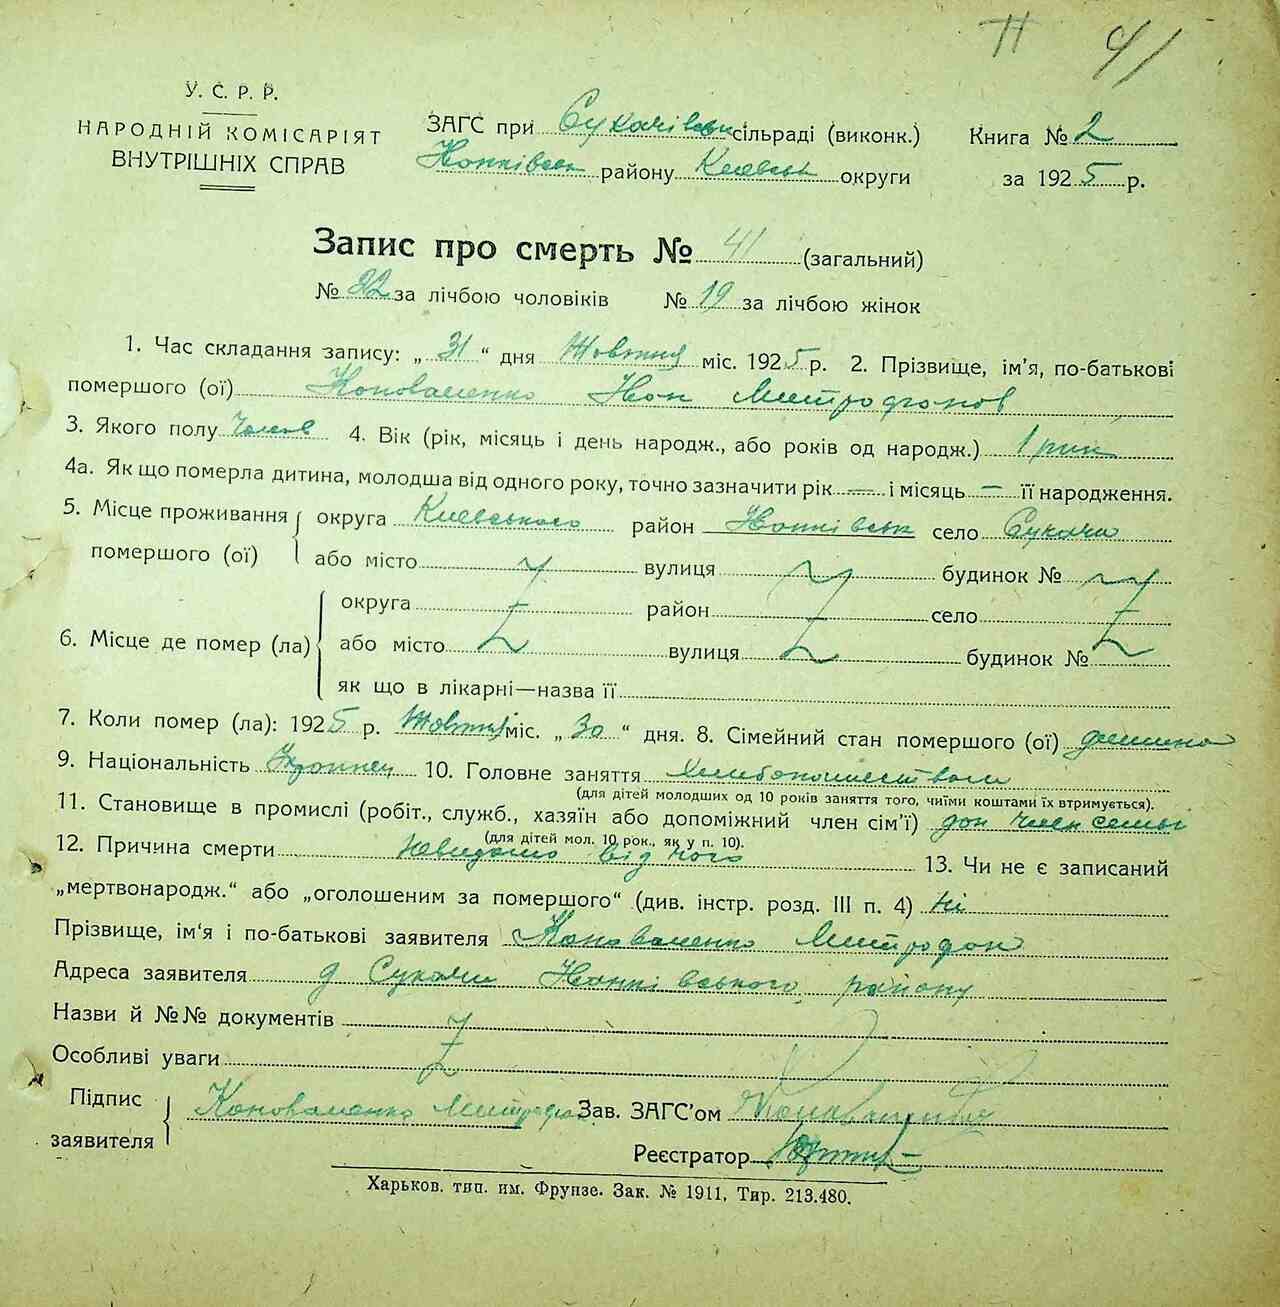 П 41
У. С. Р. Р.
НАРОДНІЙ КОМІСАРІЯТ
ВНУТРІШНІХ СПРАВ
ЗАГС при Сукачівськ сільраді (виконк.)
районy Киевськ округи
Книга № 2
за 1925 р.
Запис про смерть № 41 (загальний)
№ 22 за лічбою чоловіків № 19 за лічбою жінок
1. Час складання запису: „ 31 “ дня Жовтня міс. 1925 р. 2. Прізвище, ім'я, по-батькові
помершого (ої) Коноваленко Нон Митрофонов
3. Якого полу Чолов 4. Вік (рік, місяць і день народж., або років од народж.) 1 рик
4а. Як що померла дитина, молодша від одного року, точно зазначити рік — і місяць — її народження.
5. Місце проживання помершого (ої) округа Киевського район село Сукачи
або місто вулиця будинок №
6. Місце де помер (ла) округа район село
або місто вулиця будинок №
як що в лікарні—назва її
7. Коли помер (ла): 1925 р. Жовтня міс. „ 30 “ дня. 8. Сімейний стан помершого (ої) дитина
9. Національність 10. Головне заняття Хлибопашеством
(для дітей молодших од 10 років заняття того, чиїми коштами їх втримується).
11. Становище в промислі (робіт., служб., хазяїн або допоміжний член сім'ї) доп член семьі
(для дітей мол. 10 рок., як у п. 10).
12. Причина смерти Невидомо від чого 13. Чи не є записаний
„мертвонародж.“ або „оголошеним за помершого“ (див. інстр. розд. III п. 4) Ні
Прізвище, ім'я і по-батькові заявителя Коноваленко Митрофон
Адреса заявителя Сукачи району
Назви й №№ документів
Особливі уваги
Підпис заявителя Коноваленко Митрофон Зав. ЗАГС'ом
Реєстратор
Харьков. тип. им. Фрунзе. Зак. № 1911, Тир. 213.480.